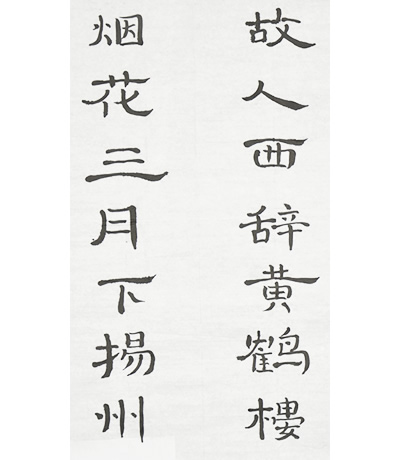 故人西辞黄鹤樓
烟花三月下揚州